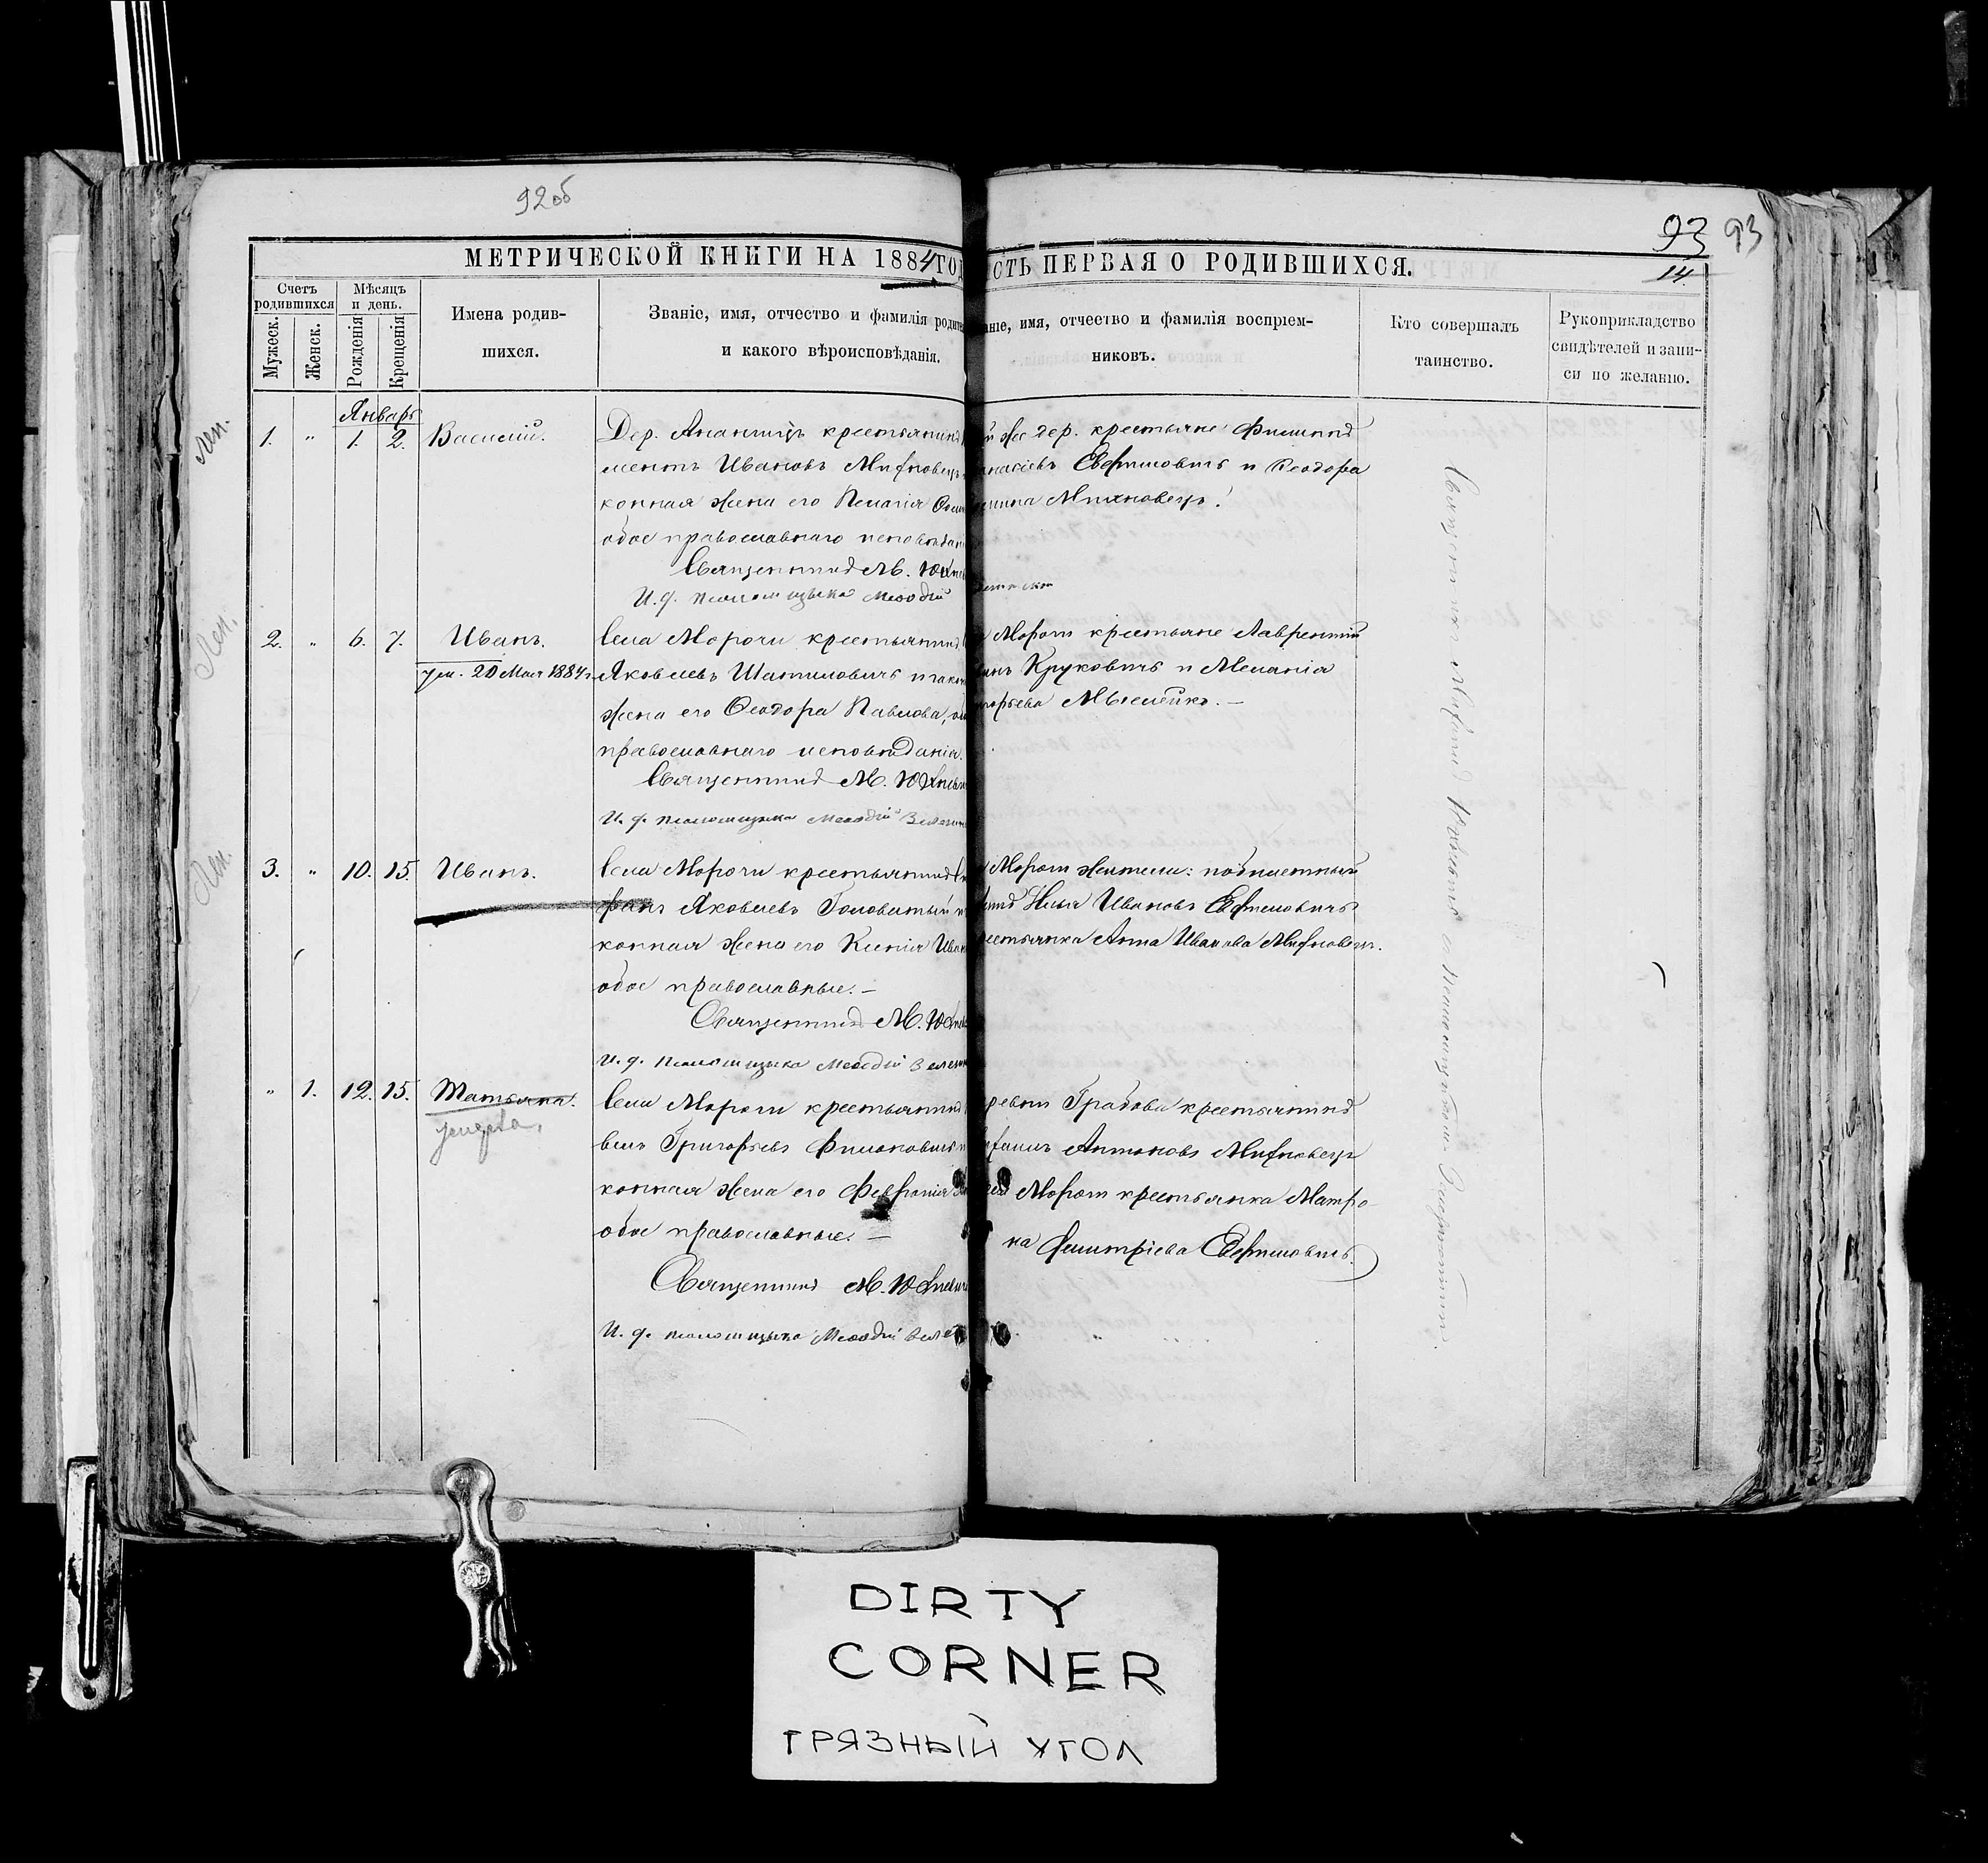 92об
93 93
14.
МЕТРИЧЕСКОЙ КНИГИ НА 1884 ГОД
СТЬ ПЕРВАЯ О РОДИВШИХСЯ.
Счетъ родившихся
Мужеск.
Женск.
Мѣсяцъ и день.
Рожденія
Крещенія
Имена родив-
шихся.
Званіе, имя, отчество и фамилія родите
и какого вѣроисповѣданія.
аніе, имя, отчество и фамилія воспріем-
никовъ.
Кто совершалъ
таинство.
Рукоприкладство
свидѣтелей и запи-
си по желанію.
Январь
Леп.
1. " 1. 2. Василій.
Дер. Ананчицъ крестьянинъ
ментъ Ивановъ Михновецъ
конная жена его Пелагія
обое православнаго исповѣдан
Священникъ М. Юхне
И. д. псаломщика Меѳодій
й же дер. крестьяне Филиппъ
насіевъ Евтиховичъ и Ѳеодора
Михновецъ.
Леп.
2. " 6. 7. Иванъ.
ум. 20 Мая 1884 г.
Села Морочи крестьянинъ
Яковлевъ Шатиловичъ и закон
жена его Ѳеодора Павлова, об
православнаго исповѣданія.
Священникъ М. Юхнев
И. д. псаломщика Меѳодій
Морочи крестьяне Лаврентій
Круковичъ и Меланія
горьева Мыслейко. —
Леп.
3. " 10. 15. Иванъ.
Села Морочи крестьянинъ
фанъ Яковлевъ Головатый и
конная жена его Ксенія Иван
обое православные. —
Священникъ М. Юхнев
И. д. псаломщика Меѳодій
Морочи жители:
Илья Ивановъ Евтиховичъ
рестьянка Анна Иванова Михновецъ.
" 1. 12. 15. Татьяна.
умерла.
Села Морочи крестьянинъ
велъ Григорьевъ Филиповичъ и
конная жена его Февронія
обое православные. —
Священникъ М. Юхневич
И. д. псаломщика Меѳодій
ревни Градова крестьянинъ
Антоновъ Михновецъ
Морочи крестьянка Матро-
на Димитріева Евтиховичъ.
DIRTY
CORNER
ГРЯЗНЫЙ УГОЛ